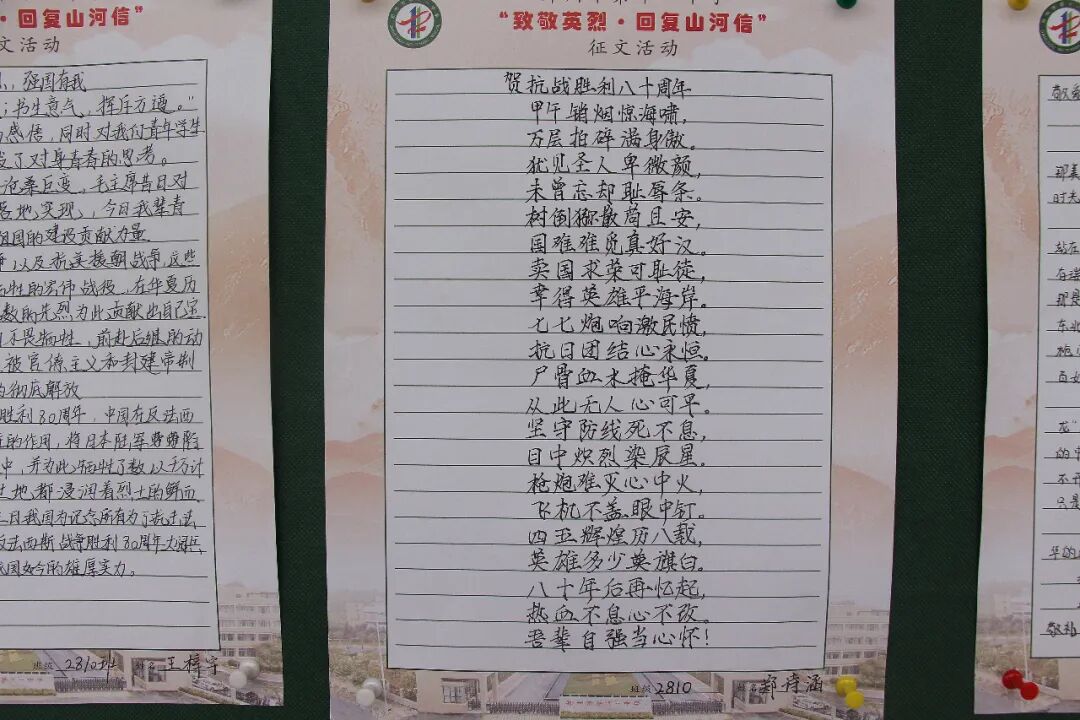 回复山河信”
征文活动
强国有我
书生意气，挥斥方遒。”
感悟，同时对我们青年学生
了对身青春的思考。
沧桑巨变，毛主席昔日对
实现，今日我辈青
祖国的建设贡献力量
以及抗美援朝战争，这些
牺牲的宏伟战役，在华夏历
数的先烈为此贡献出自己宝
不畏牺牲，前赴后继的动
被官僚主义和封建帝制
的彻底解放
胜利80周年，中国在反法西
的作用，将日本陆军
中，并为此牺牲了数以千万计
土地都浸润着烈士的鲜血
日我国为记念所有为了抗击法
反法西斯战争胜利80周年大阅兵，
民国如今的雄厚实力。
班级 2310班 姓名 王梓宇
“致敬英烈·回复山河信”
征文活动
贺抗战胜利八十周年
甲午销烟惊海啸，
万层拍碎满身傲。
犹见圣人卑微颜，
未曾忘却耻辱条。
树倒猕散苟且安，
国难难觅真好汉。
卖国求荣可耻徒，
幸得英雄平海岸。
七七炮响激民愤，
抗日团结心永恒。
尸骨血木掩华夏，
从此无人心可平。
坚守防线死不息，
日中炽烈染辰星。
枪炮难灭心中火，
飞机不盖眼中钉。
四五辉煌历八载，
英雄多少奠旗白。
八十年后再忆起，
热血不息心不改。
吾辈自强当心怀！
班级 2810 姓名 郑诗涵
敬爱
那美
时光
站在
存
那是
东北
枪
百姓
花”
的
不
只是
华的
敬礼